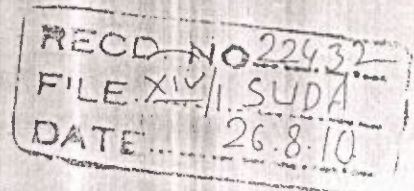 RECD NO 22432
FILE XIV/1. SUDA
DATE 26.8.10